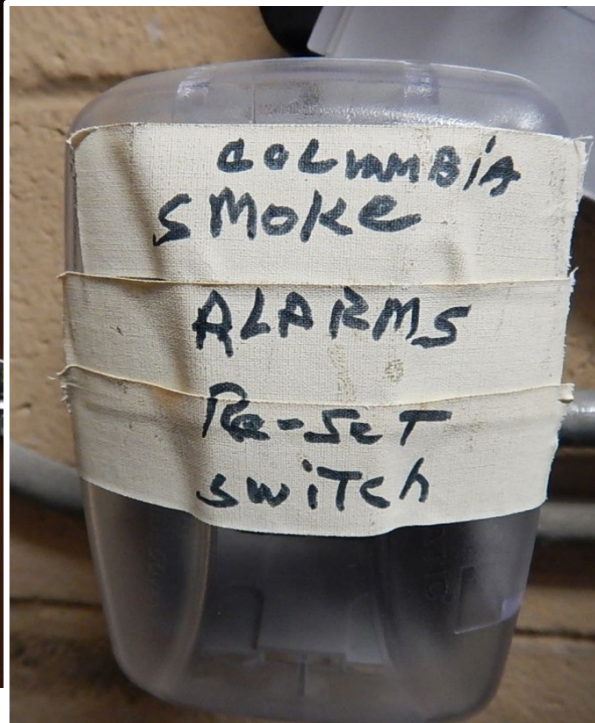 COLUMBiA
SMOKe
ALARMS
Re-SeT
switch